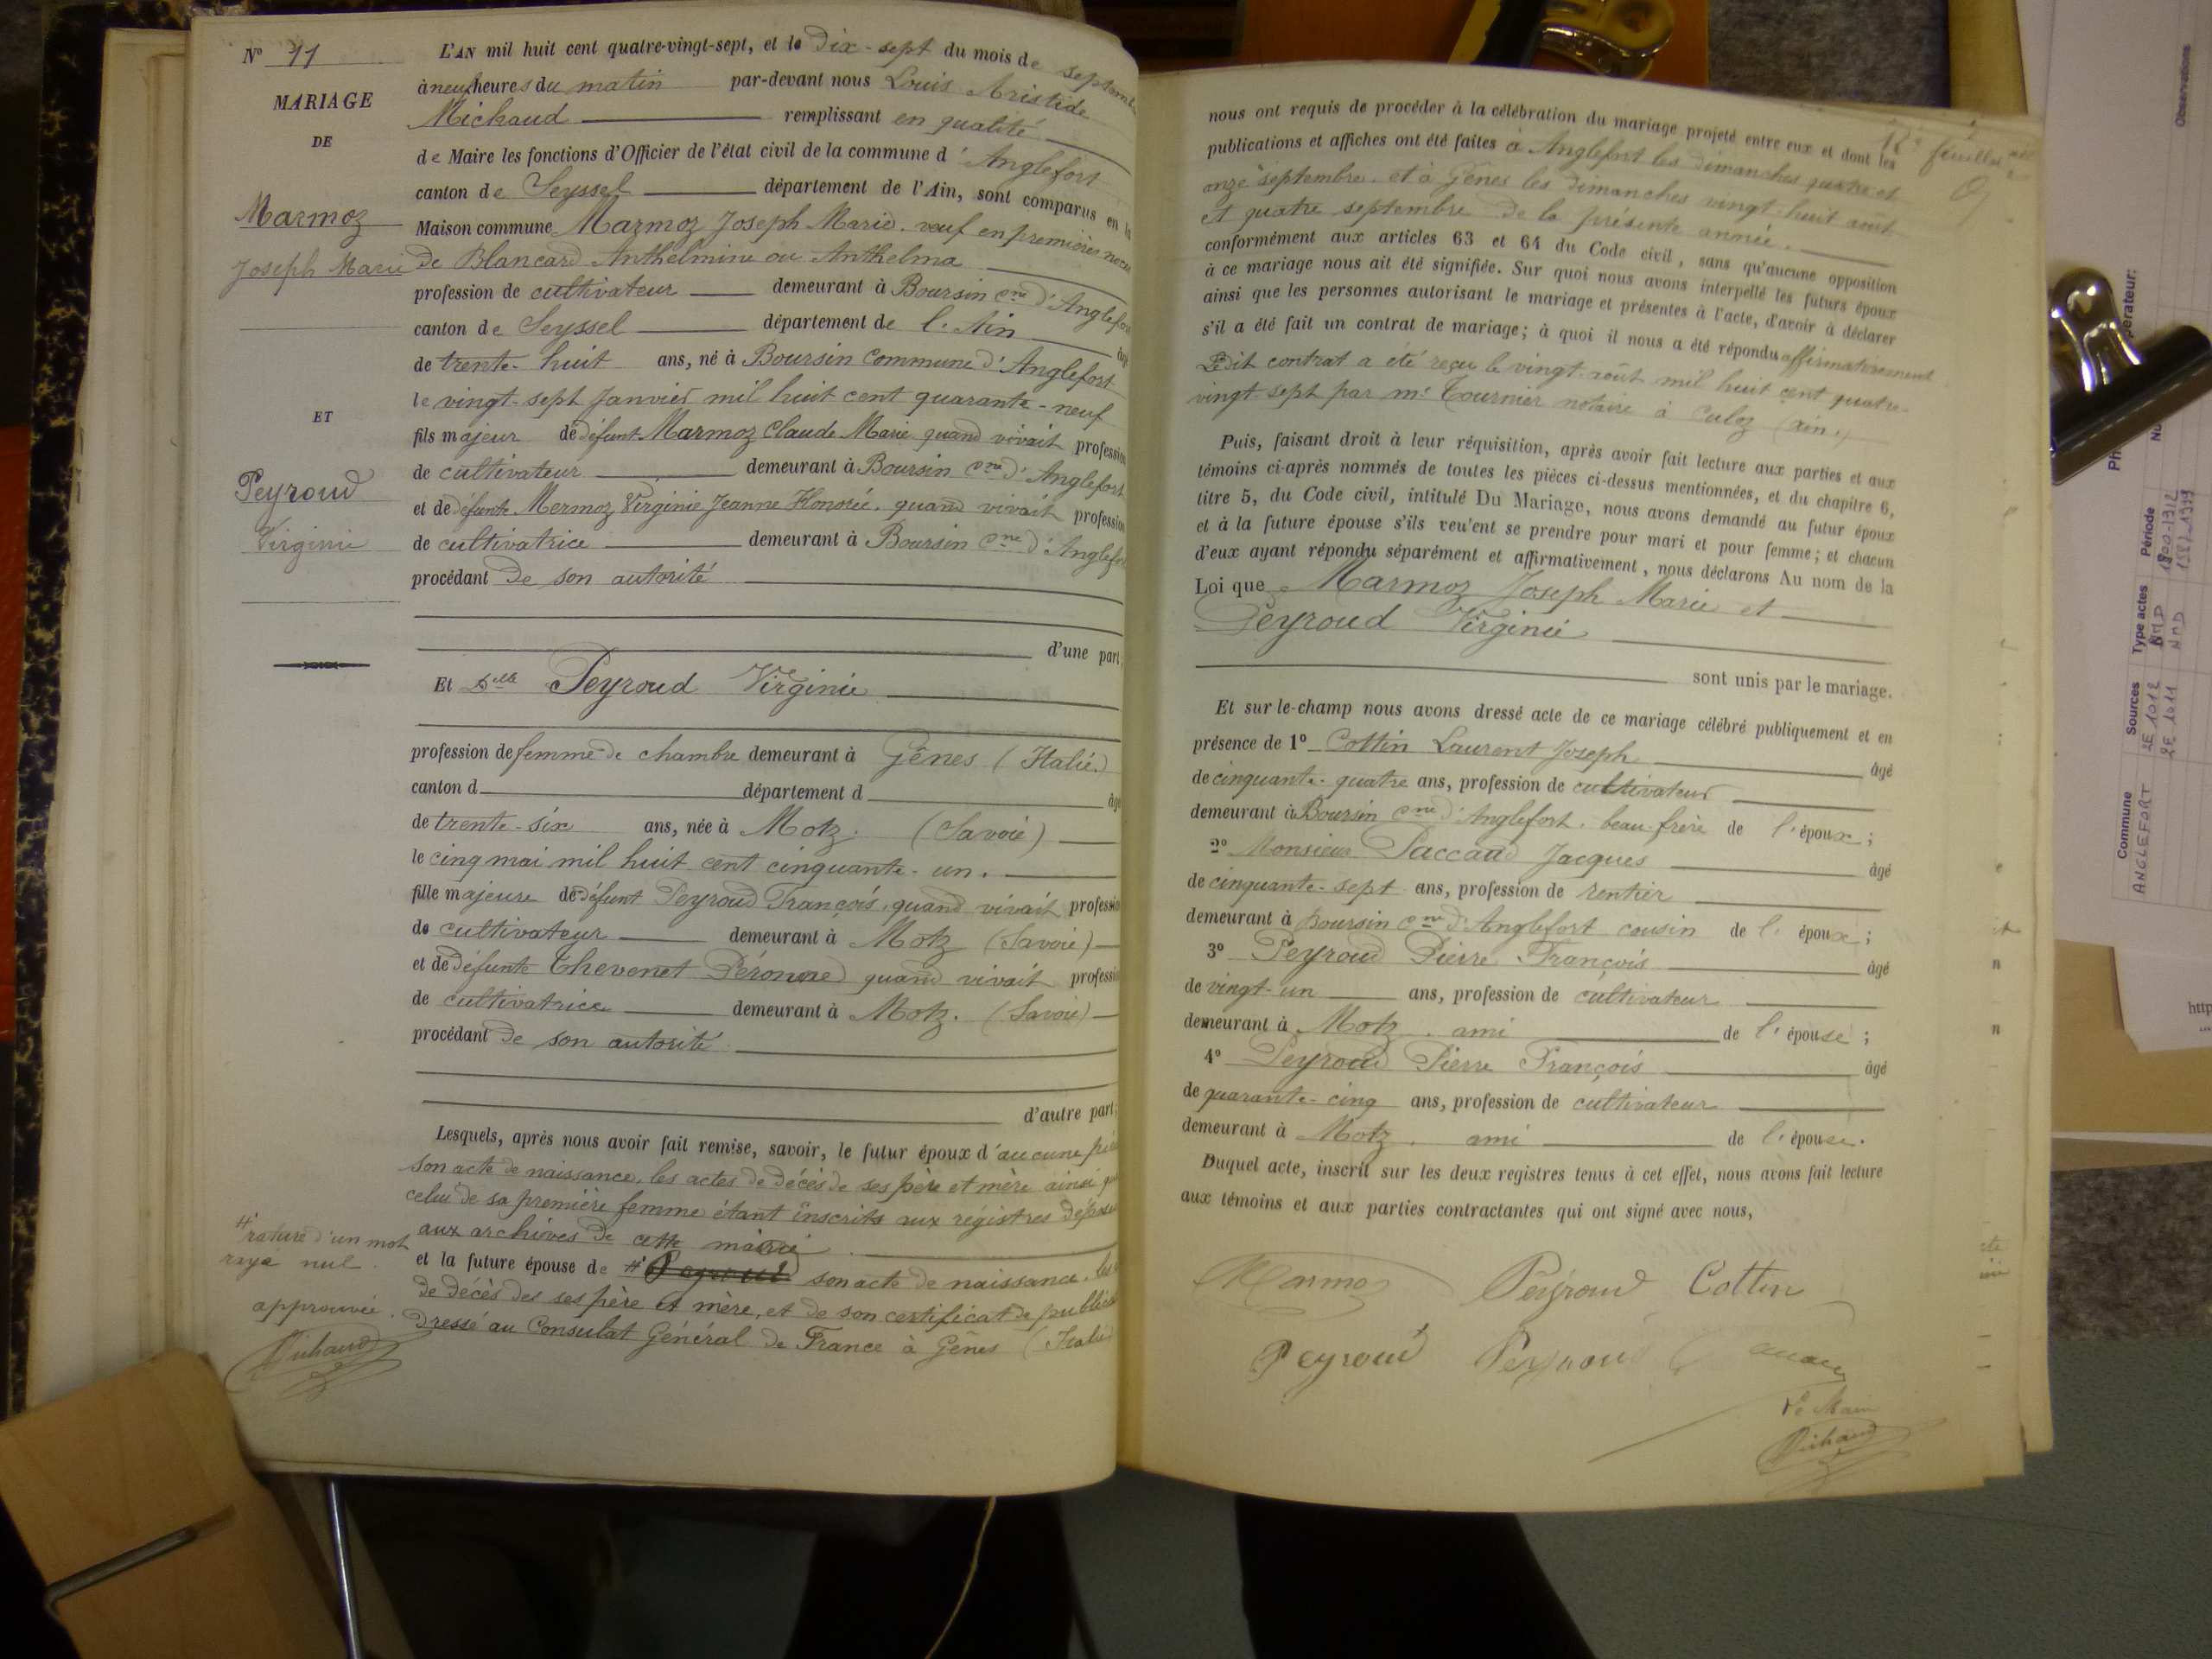 N° 11
MARIAGE
DE
Marmoz
Joseph Marie
ET
Peyroud
Virginie
L'AN mil huit cent quatre-vingt-sept, et le Dix-sept du mois de septembre
à neuf heures du matin par-devant nous Louis Aristide
Michaud remplissant en qualité
de Maire les fonctions d'Officier de l'état civil de la commune d'Anglefort
canton de Seyssel département de l'Ain, sont comparus en la
Maison commune Marmoz Joseph Marie, veuf en premières noces
de Blancard Anthelmine ou Anthelma
profession de cultivateur demeurant à Boursin cne d'Anglefort
canton de Seyssel département de l'Ain âgé
de trente-huit ans, né à Boursin commune d'Anglefort
le vingt-sept Janvier mil huit cent quarante-neuf
fils majeur de défunt Marmoz Claude Marie quand vivait profession
de cultivateur demeurant à Boursin cne d'Anglefort
et de défunte Mermoz Virginie Jeanne Honorée, quand vivait profession
de cultivatrice demeurant à Boursin cne d'Anglefort
procédant de son autorité
d'une part;
Et Delle Peyroud Virginie
profession de femme de chambre demeurant à Gênes (Italie)
canton d département d âgé
de trente-six ans, née à Motz (Savoie)
le cinq mai mil huit cent cinquante-un.
fille majeure de défunt Peyroud François, quand vivait profession
de cultivateur demeurant à Motz (Savoie)
et de défunte Thevenet Péronne quand vivait profession
de cultivatrice demeurant à Motz. (Savoie)
procédant de son autorité
d'autre part;
Lesquels, après nous avoir fait remise, savoir, le futur époux d'aucune pièce
son acte de naissance, les actes de décès de ses père et mère ainsi que
celui de sa première femme étant inscrits aux régistres déposés
aux archives de cette mairie.
et la future épouse de # Peyroud son acte de naissance, les
de décès des ses père et mère, et de son certificat de publication
dressé au Consulat Général de France à Gênes (Italie)
# rature d'un mot
rayé nul.
approuvée.
Michaud
12e feuillet
nous ont requis de procéder à la célébration du mariage projeté entre eux et dont les
publications et affiches ont été faites à Anglefort les dimanches quatre et
onze septembre, et à Gênes les dimanches vingt-huit août
et quatre septembre de la présente année.
conformément aux articles 63 et 64 du Code civil, sans qu'aucune opposition
à ce mariage nous ait été signifiée. Sur quoi nous avons interpellé les futurs époux
ainsi que les personnes autorisant le mariage et présentes à l'acte, d'avoir à déclarer
s'il a été fait un contrat de mariage; à quoi il nous a été répondu affirmativement
Ledit contrat a été reçu le vingt août mil huit cent quatre-
vingt sept par me Tournier notaire à Culoz (ain.)
Puis, faisant droit à leur réquisition, après avoir fait lecture aux parties et aux
témoins ci-après nommés de toutes les pièces ci-dessus mentionnées, et du chapitre 6,
titre 5, du Code civil, intitulé Du Mariage, nous avons demandé au futur époux
et à la future épouse s'ils veu'ent se prendre pour mari et pour femme; et chacun
d'eux ayant répondu séparément et affirmativement, nous déclarons Au nom de la
Loi que Marmoz Joseph Marie et
Peyroud Virginie
sont unis par le mariage.
Et sur-le-champ nous avons dressé acte de ce mariage célébré publiquement et en
présence de 1° Cottin Laurent Joseph âgé
de cinquante-quatre ans, profession de cultivateur
demeurant à Boursin cne d'Anglefort, beau-frère de l'époux;
2° Monsieur Paccaud Jacques âgé
de cinquante-sept ans, profession de rentier
demeurant à Boursin cne d'Anglefort cousin de l'époux;
3° Peyroud Pierre François âgé
de vingt-un ans, profession de cultivateur
demeurant à Motz. ami de l'épouse;
4° Peyroud Pierre François âgé
de quarante-cinq ans, profession de cultivateur
demeurant à Motz. ami de l'épouse.
Duquel acte, inscrit sur les deux registres tenus à cet effet, nous avons fait lecture
aux témoins et aux parties contractantes qui ont signé avec nous,
Marmoz Peyroud Cottin
Peyroud Peyroud
Le Maire
Michaud
Observations
Opérateur:
Commune Sources Type actes Période
ANGLEFORT 2E 1012 NMD
2E 1011 NMD
http